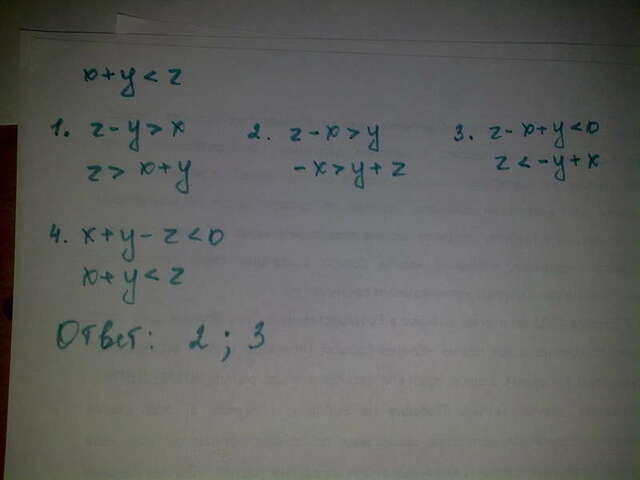 x+y<z
1. z-y>x
z> x+y
2. z-x>y
-x>y+z
3. z-x+y<0
z<-y+x
4. x+y-z<0
x+y<z
Ответ: 2; 3